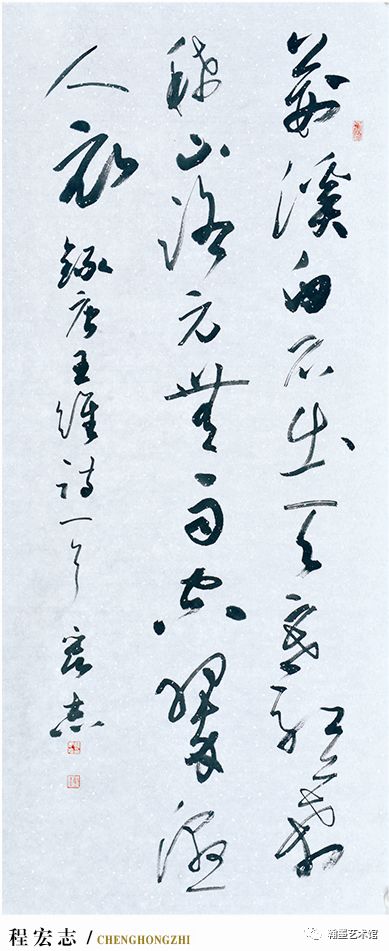 荆溪白石出天寒紅葉
稀山路元無雨空翠濕
人衣 録唐王維詩一首 宏志
程宏志 / CHENGHONGZHI
翰墨艺术馆